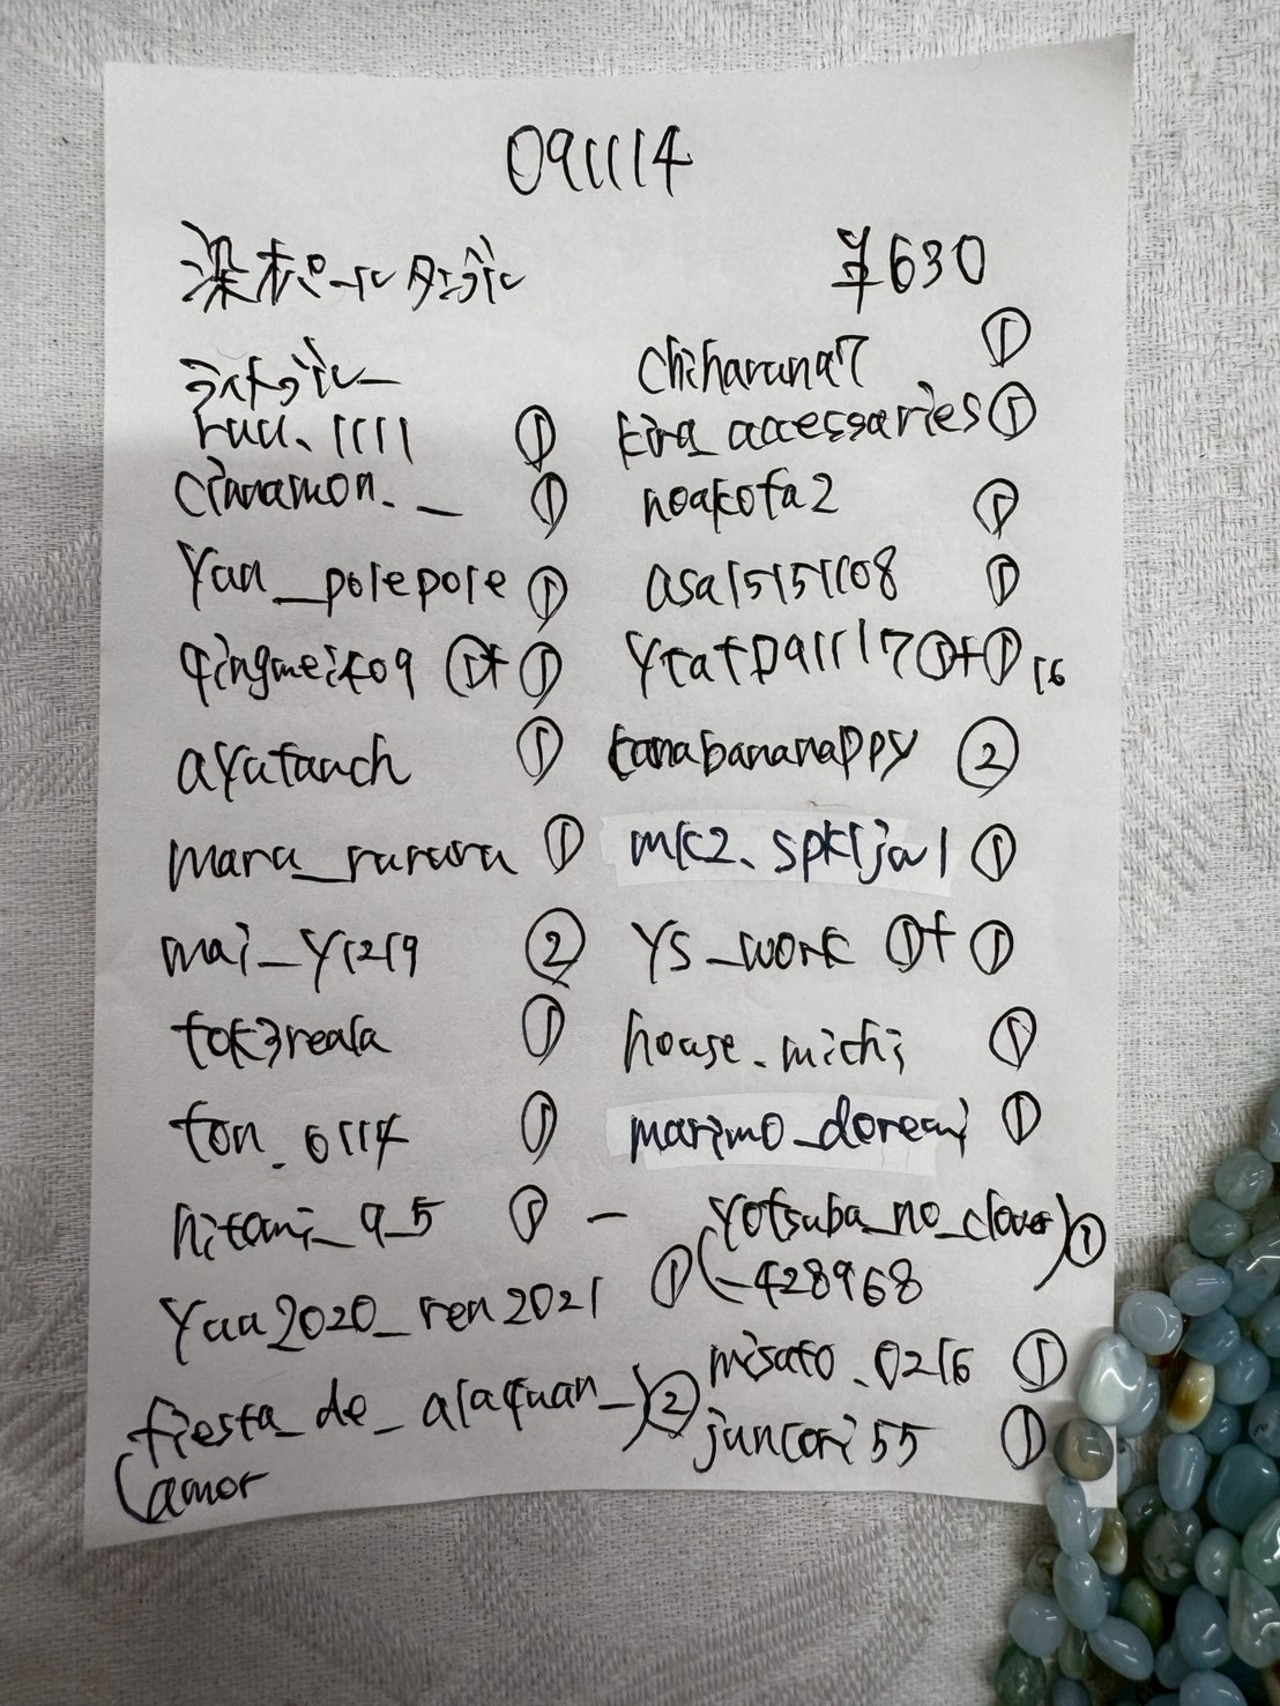 091114
染オパールタンブル
¥630
ライトブルー
ruu.1111 ①
cinnamon._ ①
yuu_polepole ①
qingmeiko9 ①+①
ayutanch ①
maru_rurura ①
mai_y1219 ②
tok3reala ①
ton_0114 ①
hitomi_9_5 ①-
yuu2020_ren2021 ①
(fiesta_de_alaquan_) ②
amor
chiharuna7 ①
kira_accessaries ①
noakota2 ①
asa15151108 ①
ytatp91117 ①+① 16
tanabananappy ②
mk2.spk1ja1 ①
ys_work ①+①
house.michi ①
marimo_doremi ①
(yotsuba_no_clover) ①
-428968
misato.0216 ①
juncori55 ①